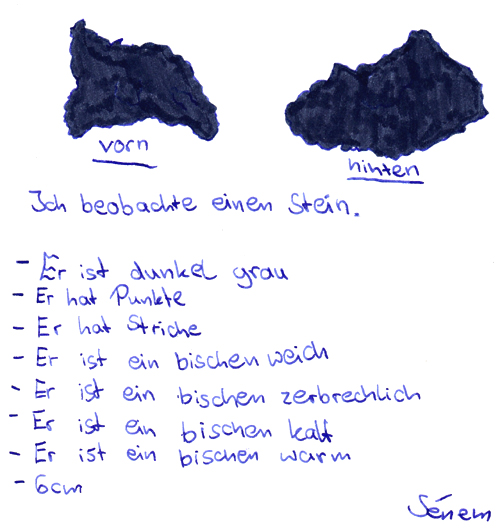 vorn
hinten
Ich beobachte einen Stein.
- Er ist dunkel grau
- Er hat Punkte
- Er hat Striche
- Er ist ein bischen weich
- Er ist ein bischen zerbrechlich
- Er ist ein bischen kalt
- Er ist ein bischen warm
- 6cm
Sénem